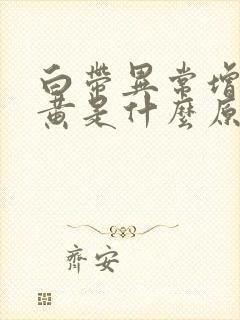 白帶異常增
黃是什麼原
齊安